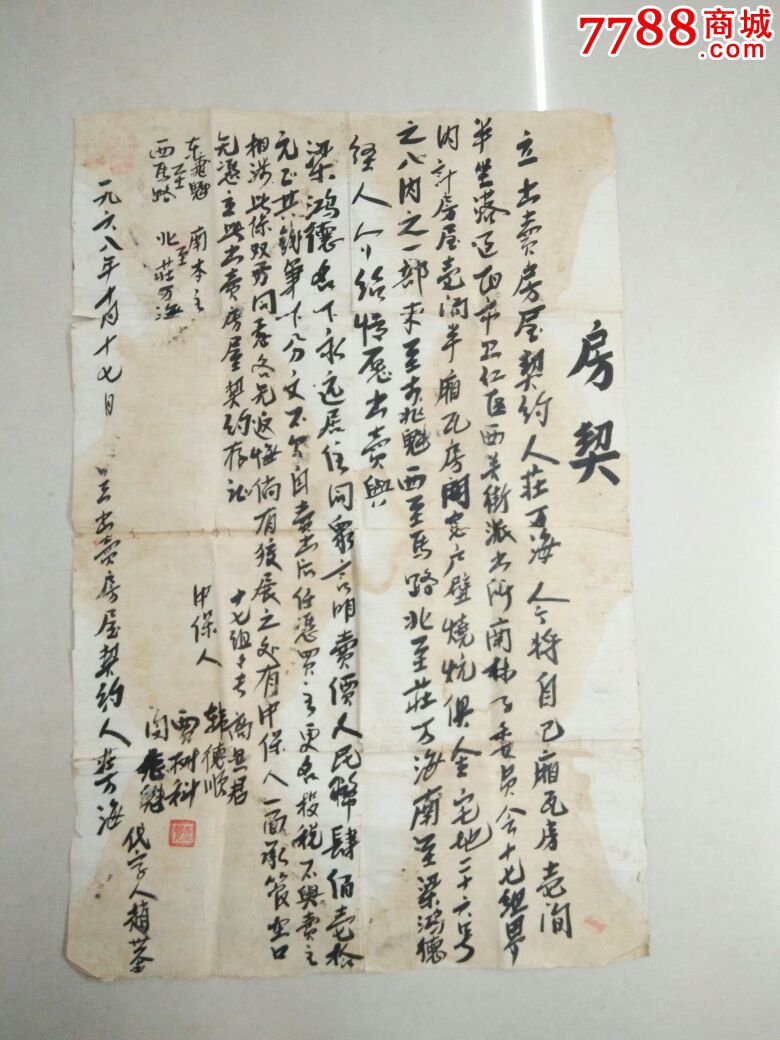 7788商城
.com
房契
立出卖房屋契约人莊万海 今将自己廂瓦房壱间
半坐落 市 仁区西关街派出所南林子委员会十七组界
内计房屋壱间半廂瓦房 窓户壁燒炕俱全宅地二十六号
之八内之一部東至 兆魁西至馬路北至莊万海南至梁鸿德
经人介绍情愿出賣與
梁鸿德名下永远居住同衆言明賣價人民幣肆佰壱拾
元正其 筆下分文不欠自賣出后任憑買主更名投税不與賣主
相涉此係双方同意各无返悔倘有發展之处有中保人一面承管空口
无憑立此出賣房屋契约存证
東 魁 南本主
至 至
西馬路 北莊万海
十七组组长 高 君
中保人 韩德順
贾树科
兆魁
一九六八年十月十七日 立出賣房屋契约人莊万海 代字人趙